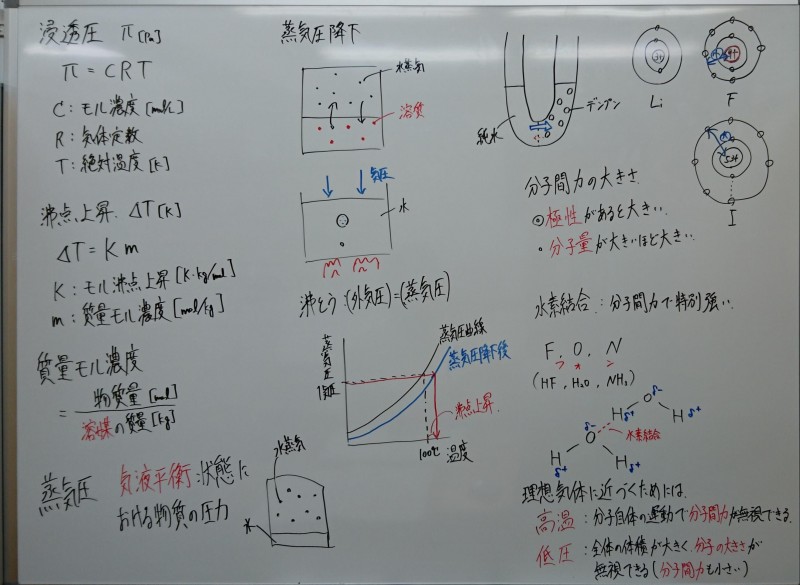 浸透圧 π[Pa]
π = CRT
C：モル濃度[mol/L]
R：気体定数
T：絶対温度[K]
沸点上昇 ΔT[K]
ΔT = K m
K：モル沸点上昇[K・kg/mol]
m：質量モル濃度[mol/kg]
質量モル濃度
= 物質量[mol]
溶媒の質量[kg]
蒸気圧 気液平衡状態に
おける物質の圧力
水蒸気
水
蒸気圧降下
水蒸気
溶質
気圧
水
沸とう：(外気圧)=(蒸気圧)
蒸気圧
1気圧
蒸気圧曲線
蒸気圧降下後
沸点上昇
100℃
温度
純水
デンプン
3+
Li
9+
F
53+
I
分子間力の大きさ
◎極性があると大きい
・分子量が大きいほど大きい
水素結合：分子間力で特別強い
F, O, N
> * >
(HF, H₂O, NH₃)
H O H
δ+ δ- δ+
水素結合
H O H
δ+ δ- δ+
理想気体に近づくためには
高温：分子自体の運動で分子間力が無視できる
低圧：全体の体積が大きく、分子の大きさが
無視できる(分子間力も小さい)